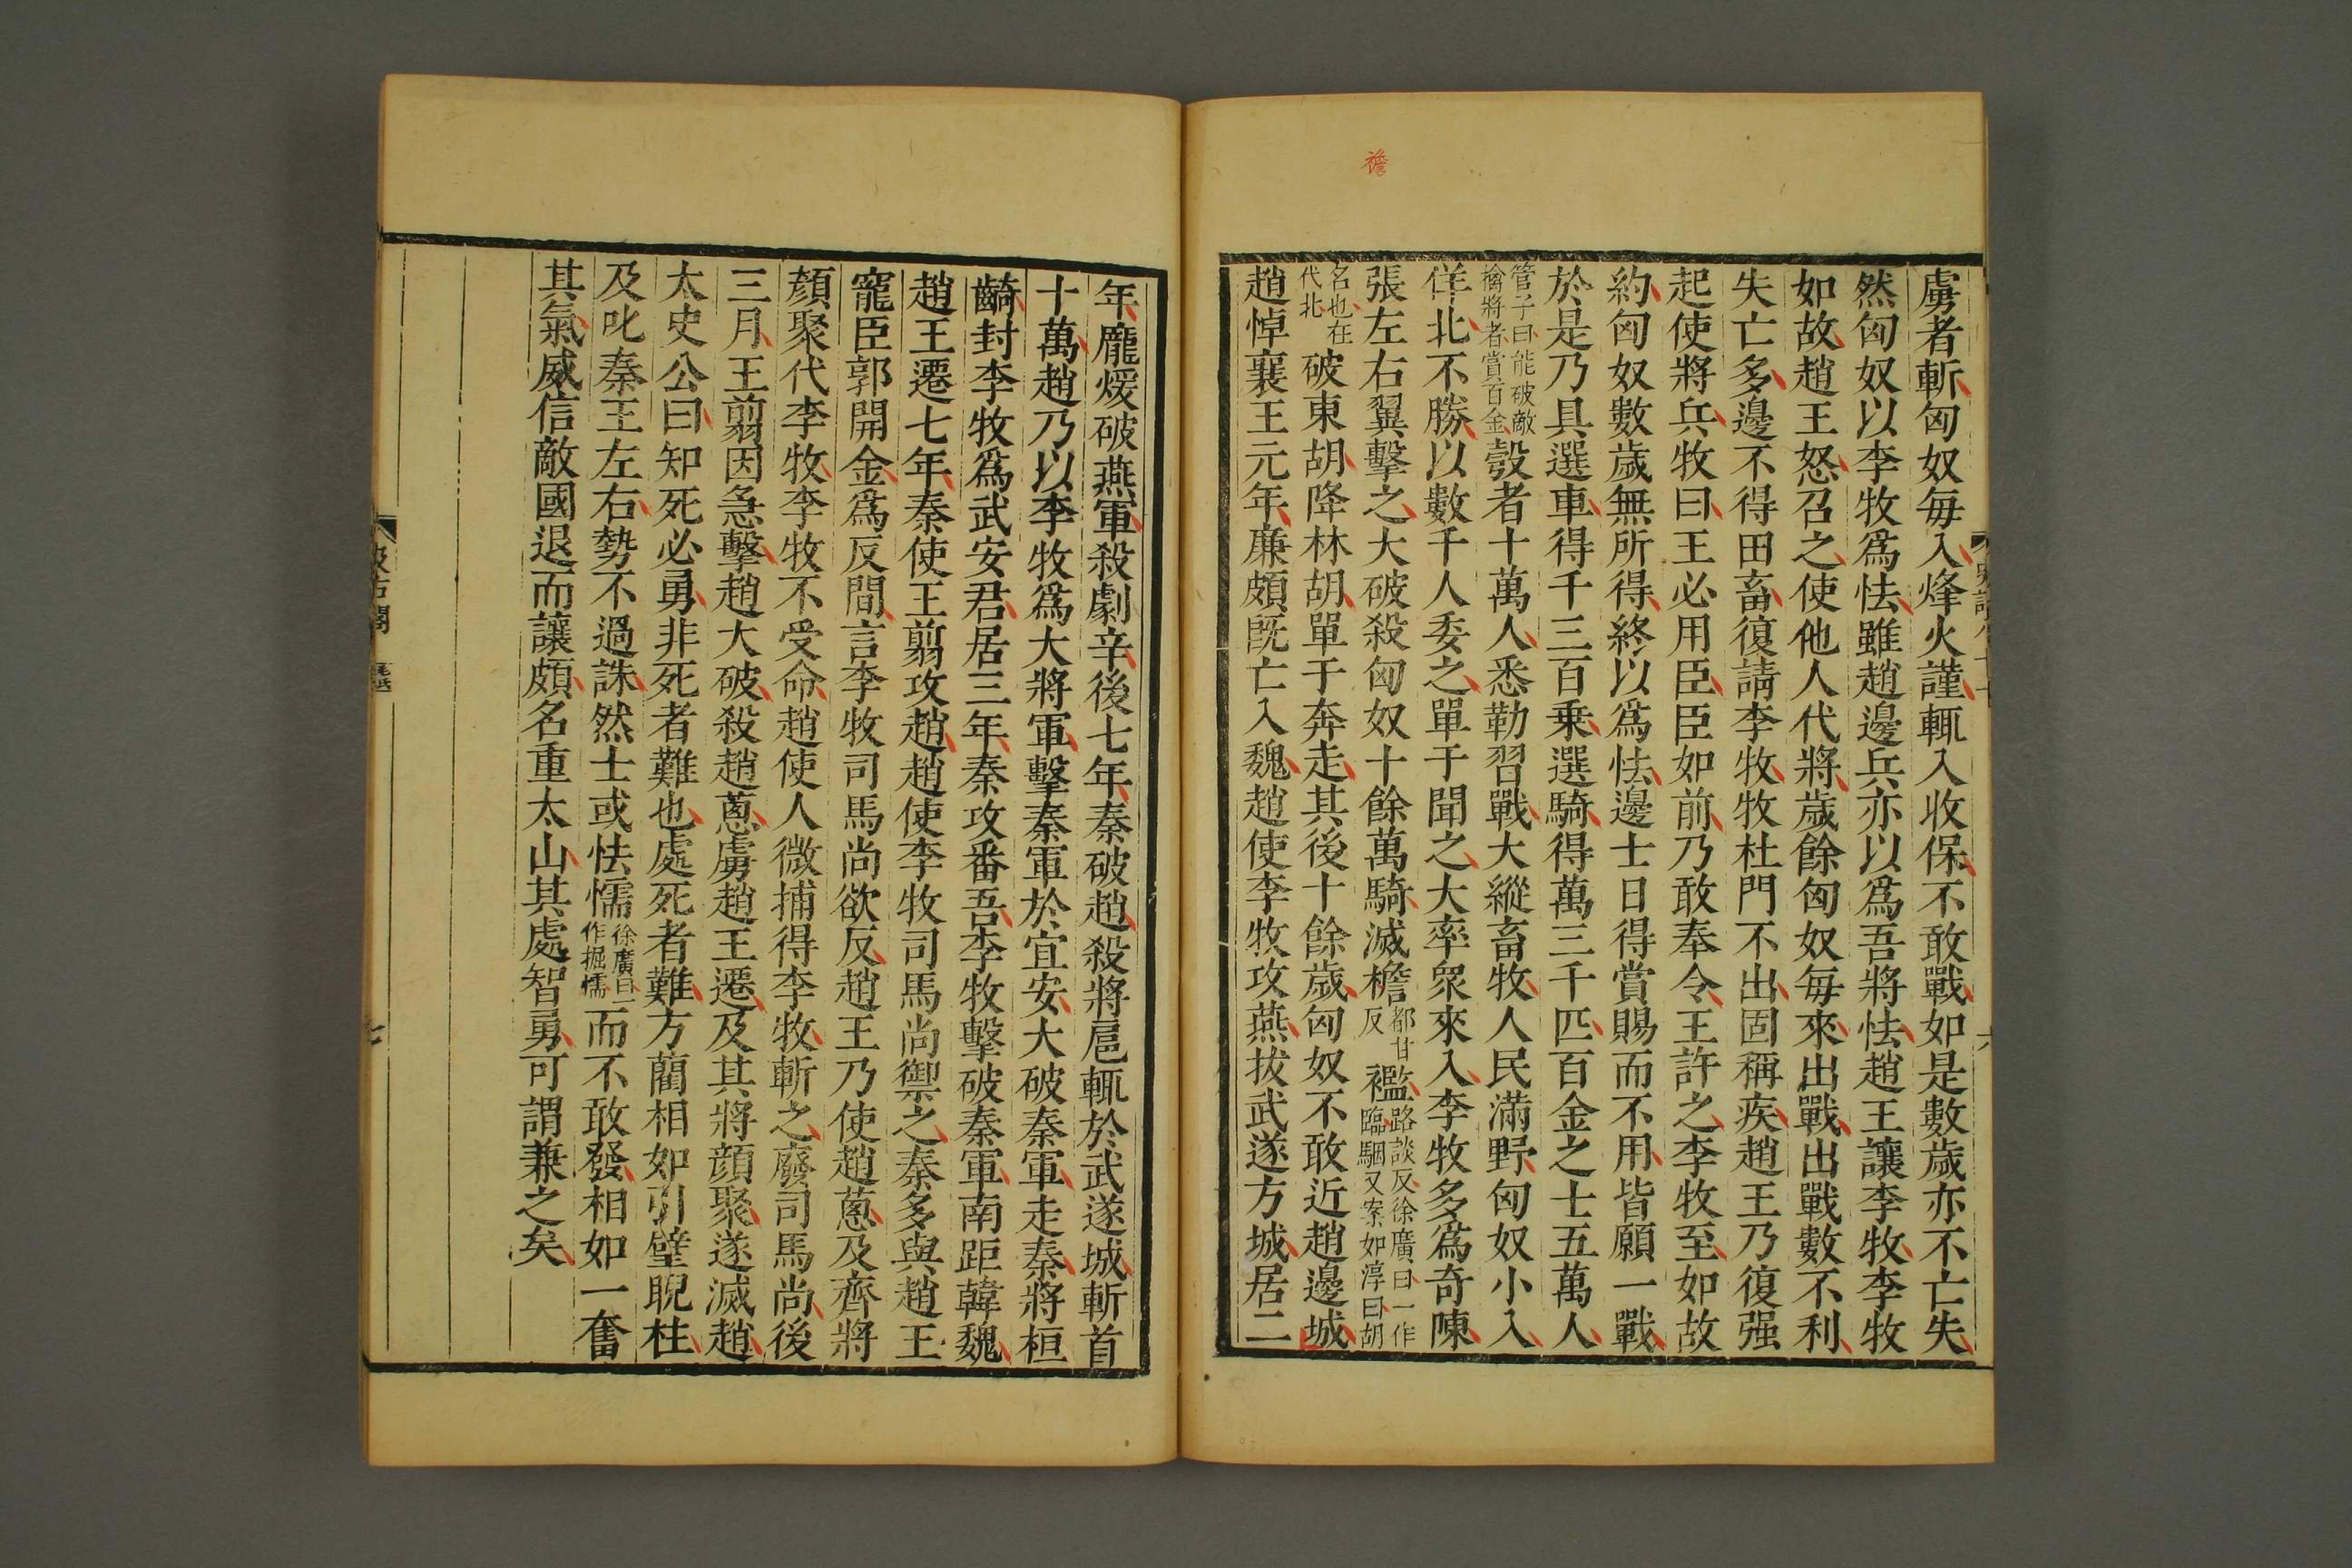 襜
虜者斬匈奴每入烽火謹輒入收保不敢戰如是數歲亦不亡失
然匈奴以李牧爲怯雖趙邊兵亦以爲吾將怯趙王讓李牧李牧
如故趙王怒召之使他人代將歲餘匈奴每來出戰出戰數不利
失亡多邊不得田畜復請李牧牧杜門不出固稱疾趙王乃復强
起使將兵牧曰王必用臣臣如前乃敢奉令王許之李牧至如故
約匈奴數歲無所得終以爲怯邊士日得賞賜而不用皆願一戰
於是乃具選車得千三百乗選騎得萬三千匹百金之士五萬人
管子曰能破敵擒將者賞百金彀者十萬人悉勒習戰大縱畜牧人民滿野匈奴小入
佯北不勝以數千人委之單于聞之大率眾來入李牧多爲奇陳
張左右翼擊之大破殺匈奴十餘萬騎滅檐都甘反襤路談反徐廣曰一作臨駰又案如淳曰胡
名也在代北破東胡降林胡單于奔走其後十餘歲匈奴不敢近趙邊城
趙悼襄王元年廉頗旣亡入魏趙使李牧攻燕拔武遂方城居二
年龐煖破燕軍殺劇辛後七年秦破趙殺將扈輒於武遂城斬首
十萬趙乃以李牧爲大將軍擊秦軍於宜安大破秦軍走秦將桓
齮封李牧爲武安君居三年秦攻番吾李牧擊破秦軍南距韓魏
趙王遷七年秦使王翦攻趙趙使李牧司馬尚禦之秦多與趙王
寵臣郭開金爲反間言李牧司馬尚欲反趙王乃使趙蔥及齊將
顏聚代李牧李牧不受命趙使人微捕得李牧斬之廢司馬尚後
三月王翦因急擊趙大破殺趙蔥虜趙王遷及其將顏聚遂滅趙
太史公曰知死必勇非死者難也處死者難方藺相如引璧睨柱
及叱秦王左右勢不過誅然士或怯懦徐廣曰一作掘懦而不敢發相如一奮
其氣威信敵國退而讓頗名重太山其處智勇可謂兼之矣
七